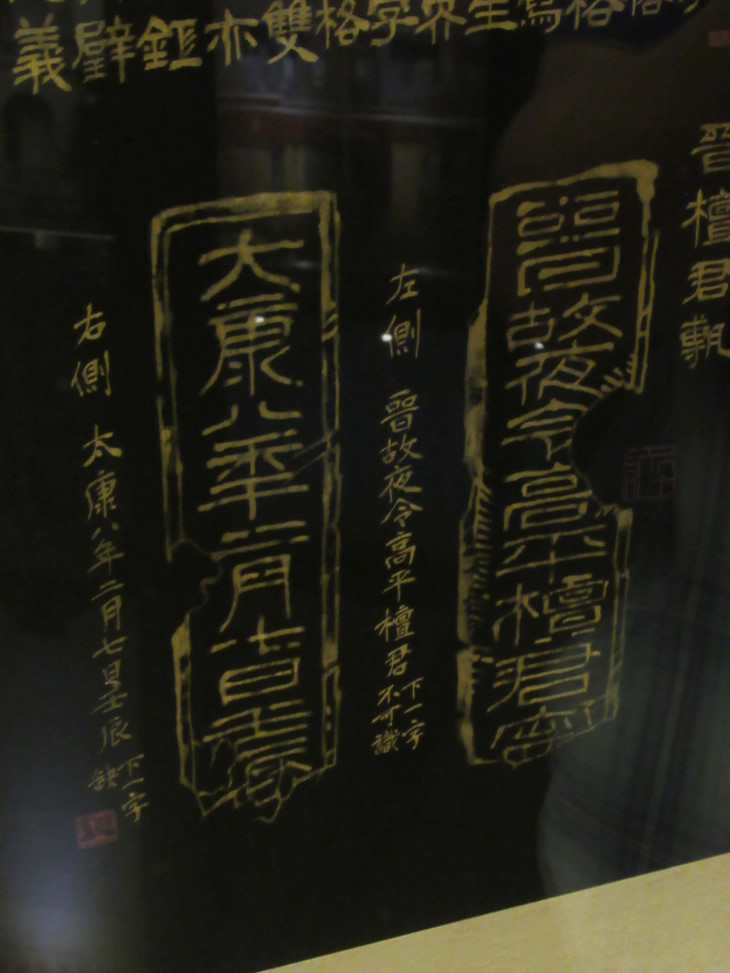 生界字格雙亦鉦璧義
晉檀君甎
晉故夜令高平檀君
左側 晉故夜令高平檀君 下一字
不可識
大康八年二月七日壬辰
右側 太康八年二月七日壬辰 下一字
缺